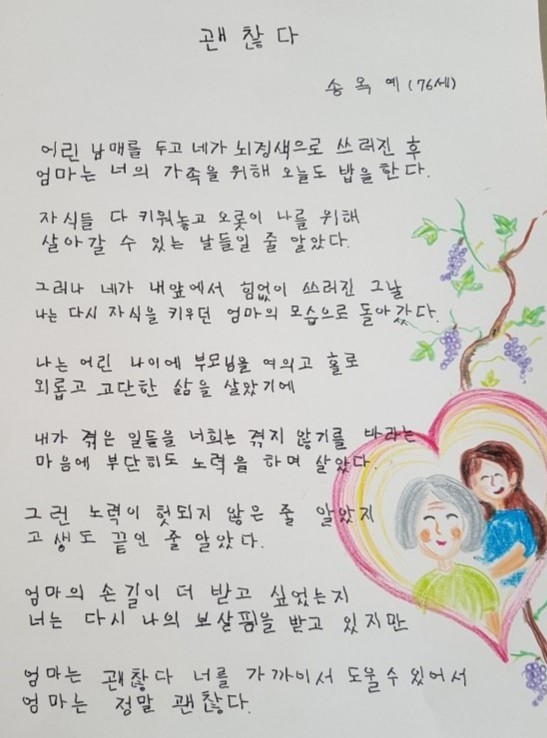 괜찮다
송옥예(76세)
어린 남매를 두고 네가 뇌경색으로 쓰러진 후
엄마는 너의 가족을 위해 오늘도 밥을 한다.
자식들 다 키워놓고 오롯이 나를 위해
살아갈 수 있는 날들일 줄 알았다.
그러나 네가 내앞에서 힘없이 쓰러진 그날
나는 다시 자식을 키우던 엄마의 모습으로 돌아갔다.
나는 어린 나이에 부모님을 여의고 홀로
외롭고 고단한 삶을 살았기에
내가 겪은 일들을 너희는 겪지 않기를 바라는
마음에 부단히도 노력을 하며 살았다.
그런 노력이 헛되지 않은 줄 알았지
고생도 끝인 줄 알았다.
엄마의 손길이 더 받고 싶었는지
너는 다시 나의 보살핌을 받고 있지만
엄마는 괜찮다 너를 가까이서 도울수있어서
엄마는 정말 괜찮다.